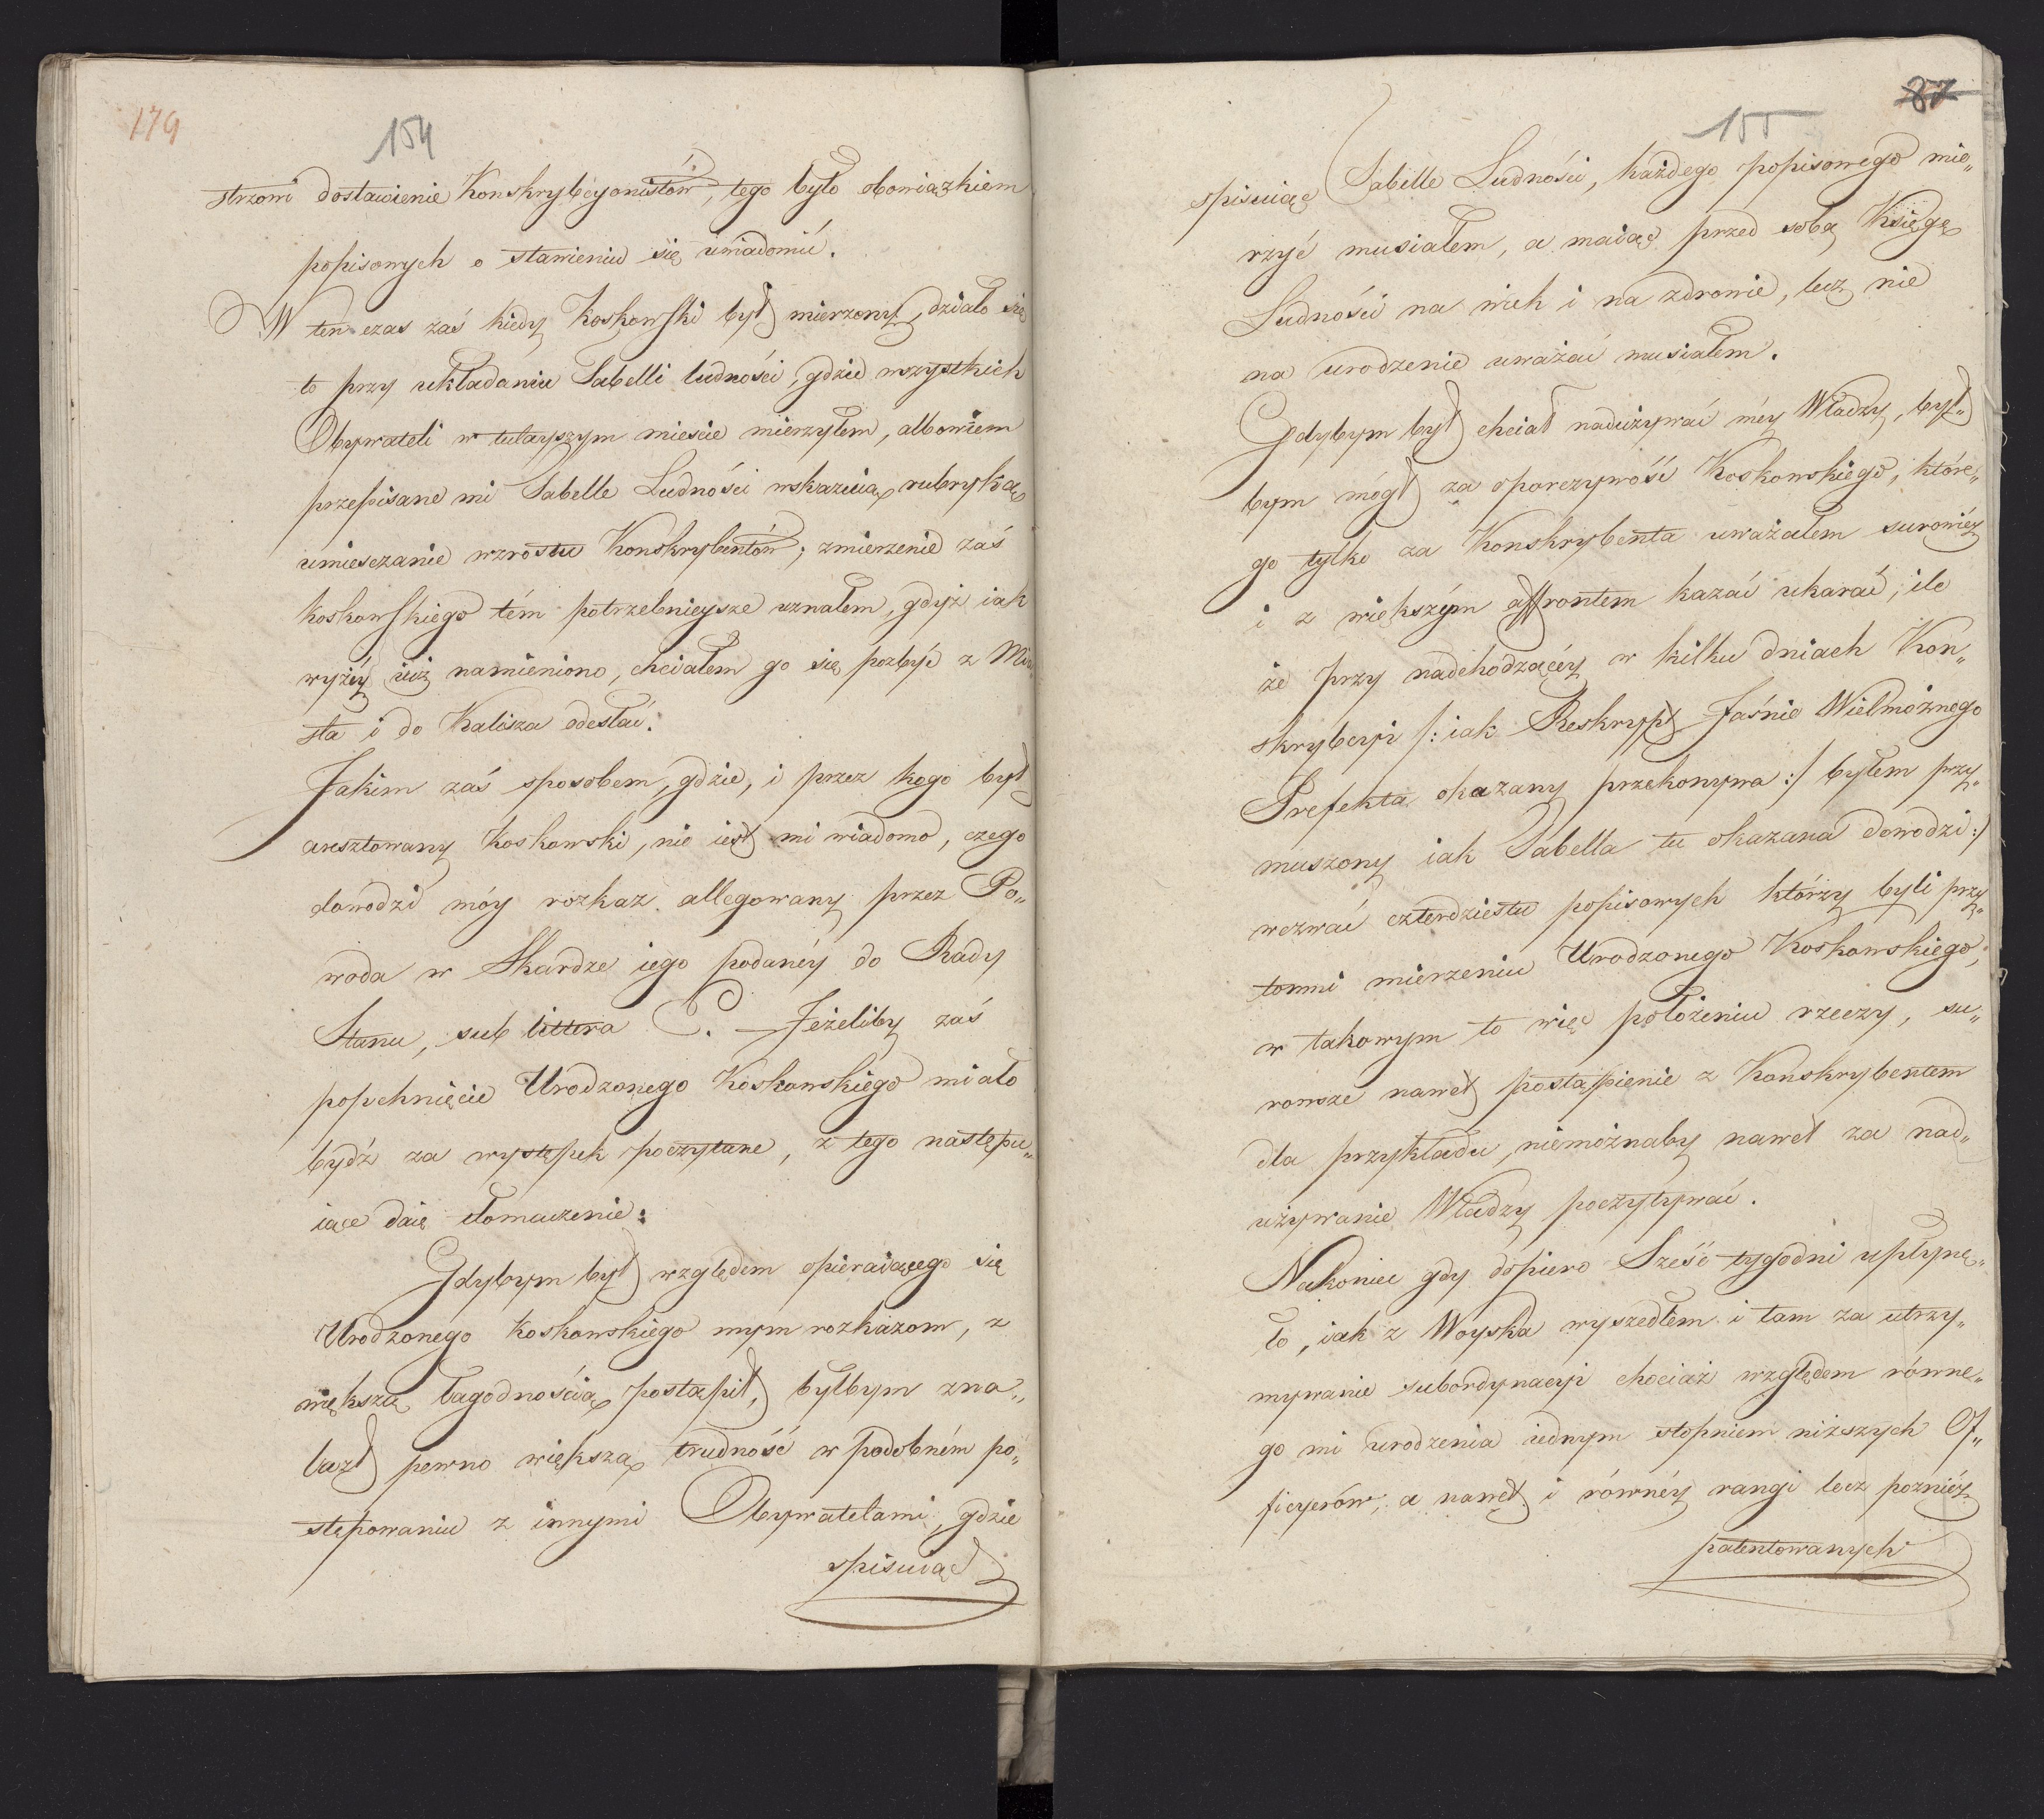 179
154
strzowi dostawienie Konskrybcyonistów, tego było obowiązkiem
popisowych o stawieniu się uwiadomić.
W ten czas zaś kiedy Koskowski był mierzony, działo się
to przy układaniu Tabelli ludności, gdzie wszystkich
Obywateli w tutayszym mieście mierzyłem, albowiem
przepisane mi Tabelle Ludności wskazuią rubryką
umiesczanie wzrostu Konskrybentów; zmierzenie zaś
Koskowskiego tém potrzebnieysze uznałem, gdyż iak
wyżéy iuż namieniono, chciałem go się pozbyć z Mia
sta i do Kalisza odesłać.
Jakim zaś sposobem, gdzie, i przez kogo był
aresztowany Koskowski, nie iest mi wiadomo, czego
dowodzi móy rozkaz allegowany przez Po„
woda w Skardze iego podanéy do Rady
Stanu, sub littera C. Jeżeliby zaś
popchnięcie Urodzonego Koskowskiego miało
bydź za występek poczytane, z tego następu„
iące daię tłomaczenie:
Gdybym był względem opieraiącego się
Urodzonego Koskowskiego mym rozkazom, z
większą łagodnością postąpił, byłbym zna„
lazł pewno większą trudność w podobném po„
stępowaniu z innymi Obywatelami, gdzie
spisuiąc
87
155
spisuiąc Tabelle Ludności, każdego popisowego mie„
rzyć musiałem, a maiąc przed sobą Księgę
Ludności na wiek i na zdrowie, lecz nie
na urodzenie uważać musiałem.
Gdybym był chciał nadużywać méy Władzy, był„
bym mógł za oporczywość Koskowskiego, które„
go tylko za Konskrybenta uważałem surowiéy
i z większym affrontem kazać ukarać, ile
że przy nadchodzącéy w kilku dniach Kon„
skrybcyi /: iak Reskrypt Jaśnie Wielmożnego
Prefekta okazany przekonywa :/ byłem przy„
muszony iak Tabella tu okazana dowodzi :/
wezwać czterdziestu popisowych którzy byli przy„
tomni mierzeniu Urodzonego Koskowskiego;
w takowym to więc położeniu rzeczy, su„
rowsze nawet postąpienie z Konskrybentem
dla przykładu, niemożnaby nawet za nad„
używanie Władzy poczytywać.
Nakoniec gdy dopiero Sześć tygodni upłynę„
ło, iak z Woyska wyszedłem i tam za utrzy„
mywanie subordynacyi chociaż względem równe„
go mi urodzenia iednym stopniem niższych Of„
ficyerów, a nawet i równéy rangi lecz poźniéy
patentowanych